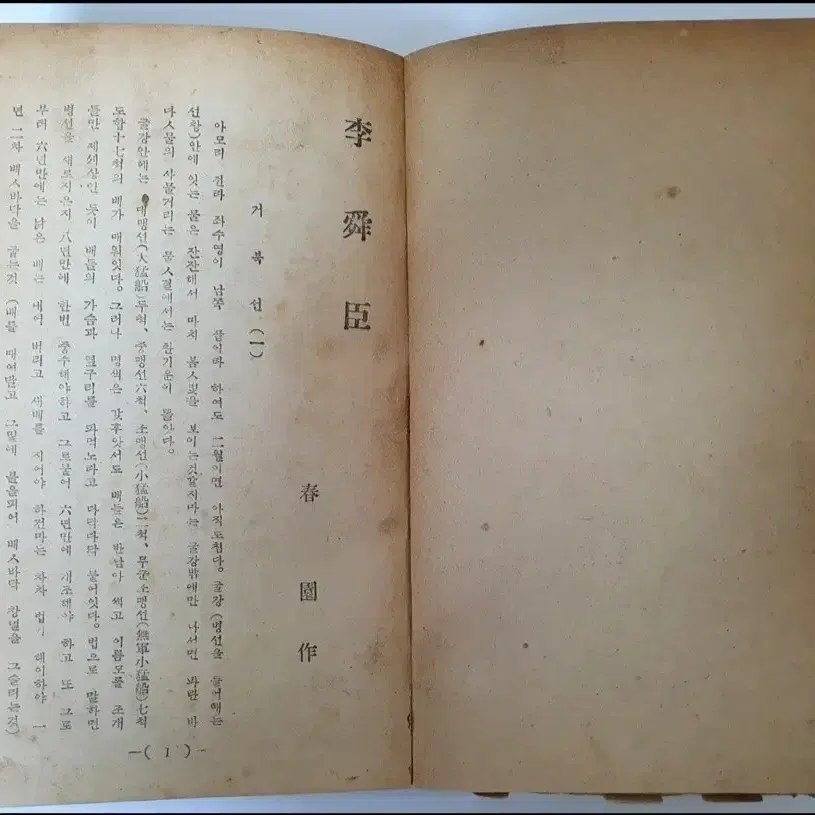 李舜臣
春園作
거북선(一)
아모리 전라 좌수영이 남쪽 끝이라 하여도 二월이면 아직도 첩다. 굴강(병선을 들여매는
선창)안에 잇는 물은 잔잔해서 마치 봄ㅅ빗을 보이는것갈지마는 굴강밖에만 나서면 파란 바
다ㅅ물의 사물거리는 물ㅅ결에서는 찬기운이 돌앗다.
굴강안에는 대맹선(大猛船)두척, 중맹선六척, 소맹선(小猛船)二척, 무군소맹선(無軍小猛船)七척
도합十七척의 배가 매워잇다. 그러나 명색은 갖후앗서도 배들은 반남아 썩고 이름모를 조개
들만 제세상인 듯이 배들의 가슴과 옆구리를 파먹노라고 다닥다닥 붙어잇다. 법으로 말하면
병선을 새로지은지 八년만에 한번 중수해야하고 그로붙어 六년만에 개조해야 하고 또 그로
부터 六년만에는 낡은 배는 내어 버리고 새배를 지어야 하건마는 차차 법이 해이하야 一
년 二차 배ㅅ바닥을 굽는것 (배를 매여달고 그밑에 불을피어 배ㅅ바닥 창널을 그슬리는것)
—( 1 )—